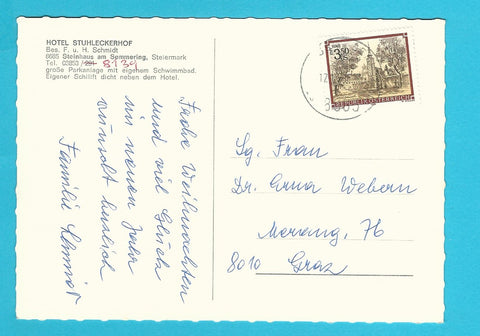 HOTEL STUHLECKERHOF
Bes. F. u. H. Schmidt
8685 Steinhaus am Semmering, Steiermark
Tel. 03853 / 201 8139
große Parkanlage mit eigenem Schwimmbad.
Eigener Schilift dicht neben dem Hotel.
Frohe Weihnachten
und viel Glück
im neuen Jahr
wünscht herzlich
Familie Schmidt
3.50
REPUBLIK ÖSTERREICH
Sg. Frau
Dr. Erna Webern
76
8010 Graz